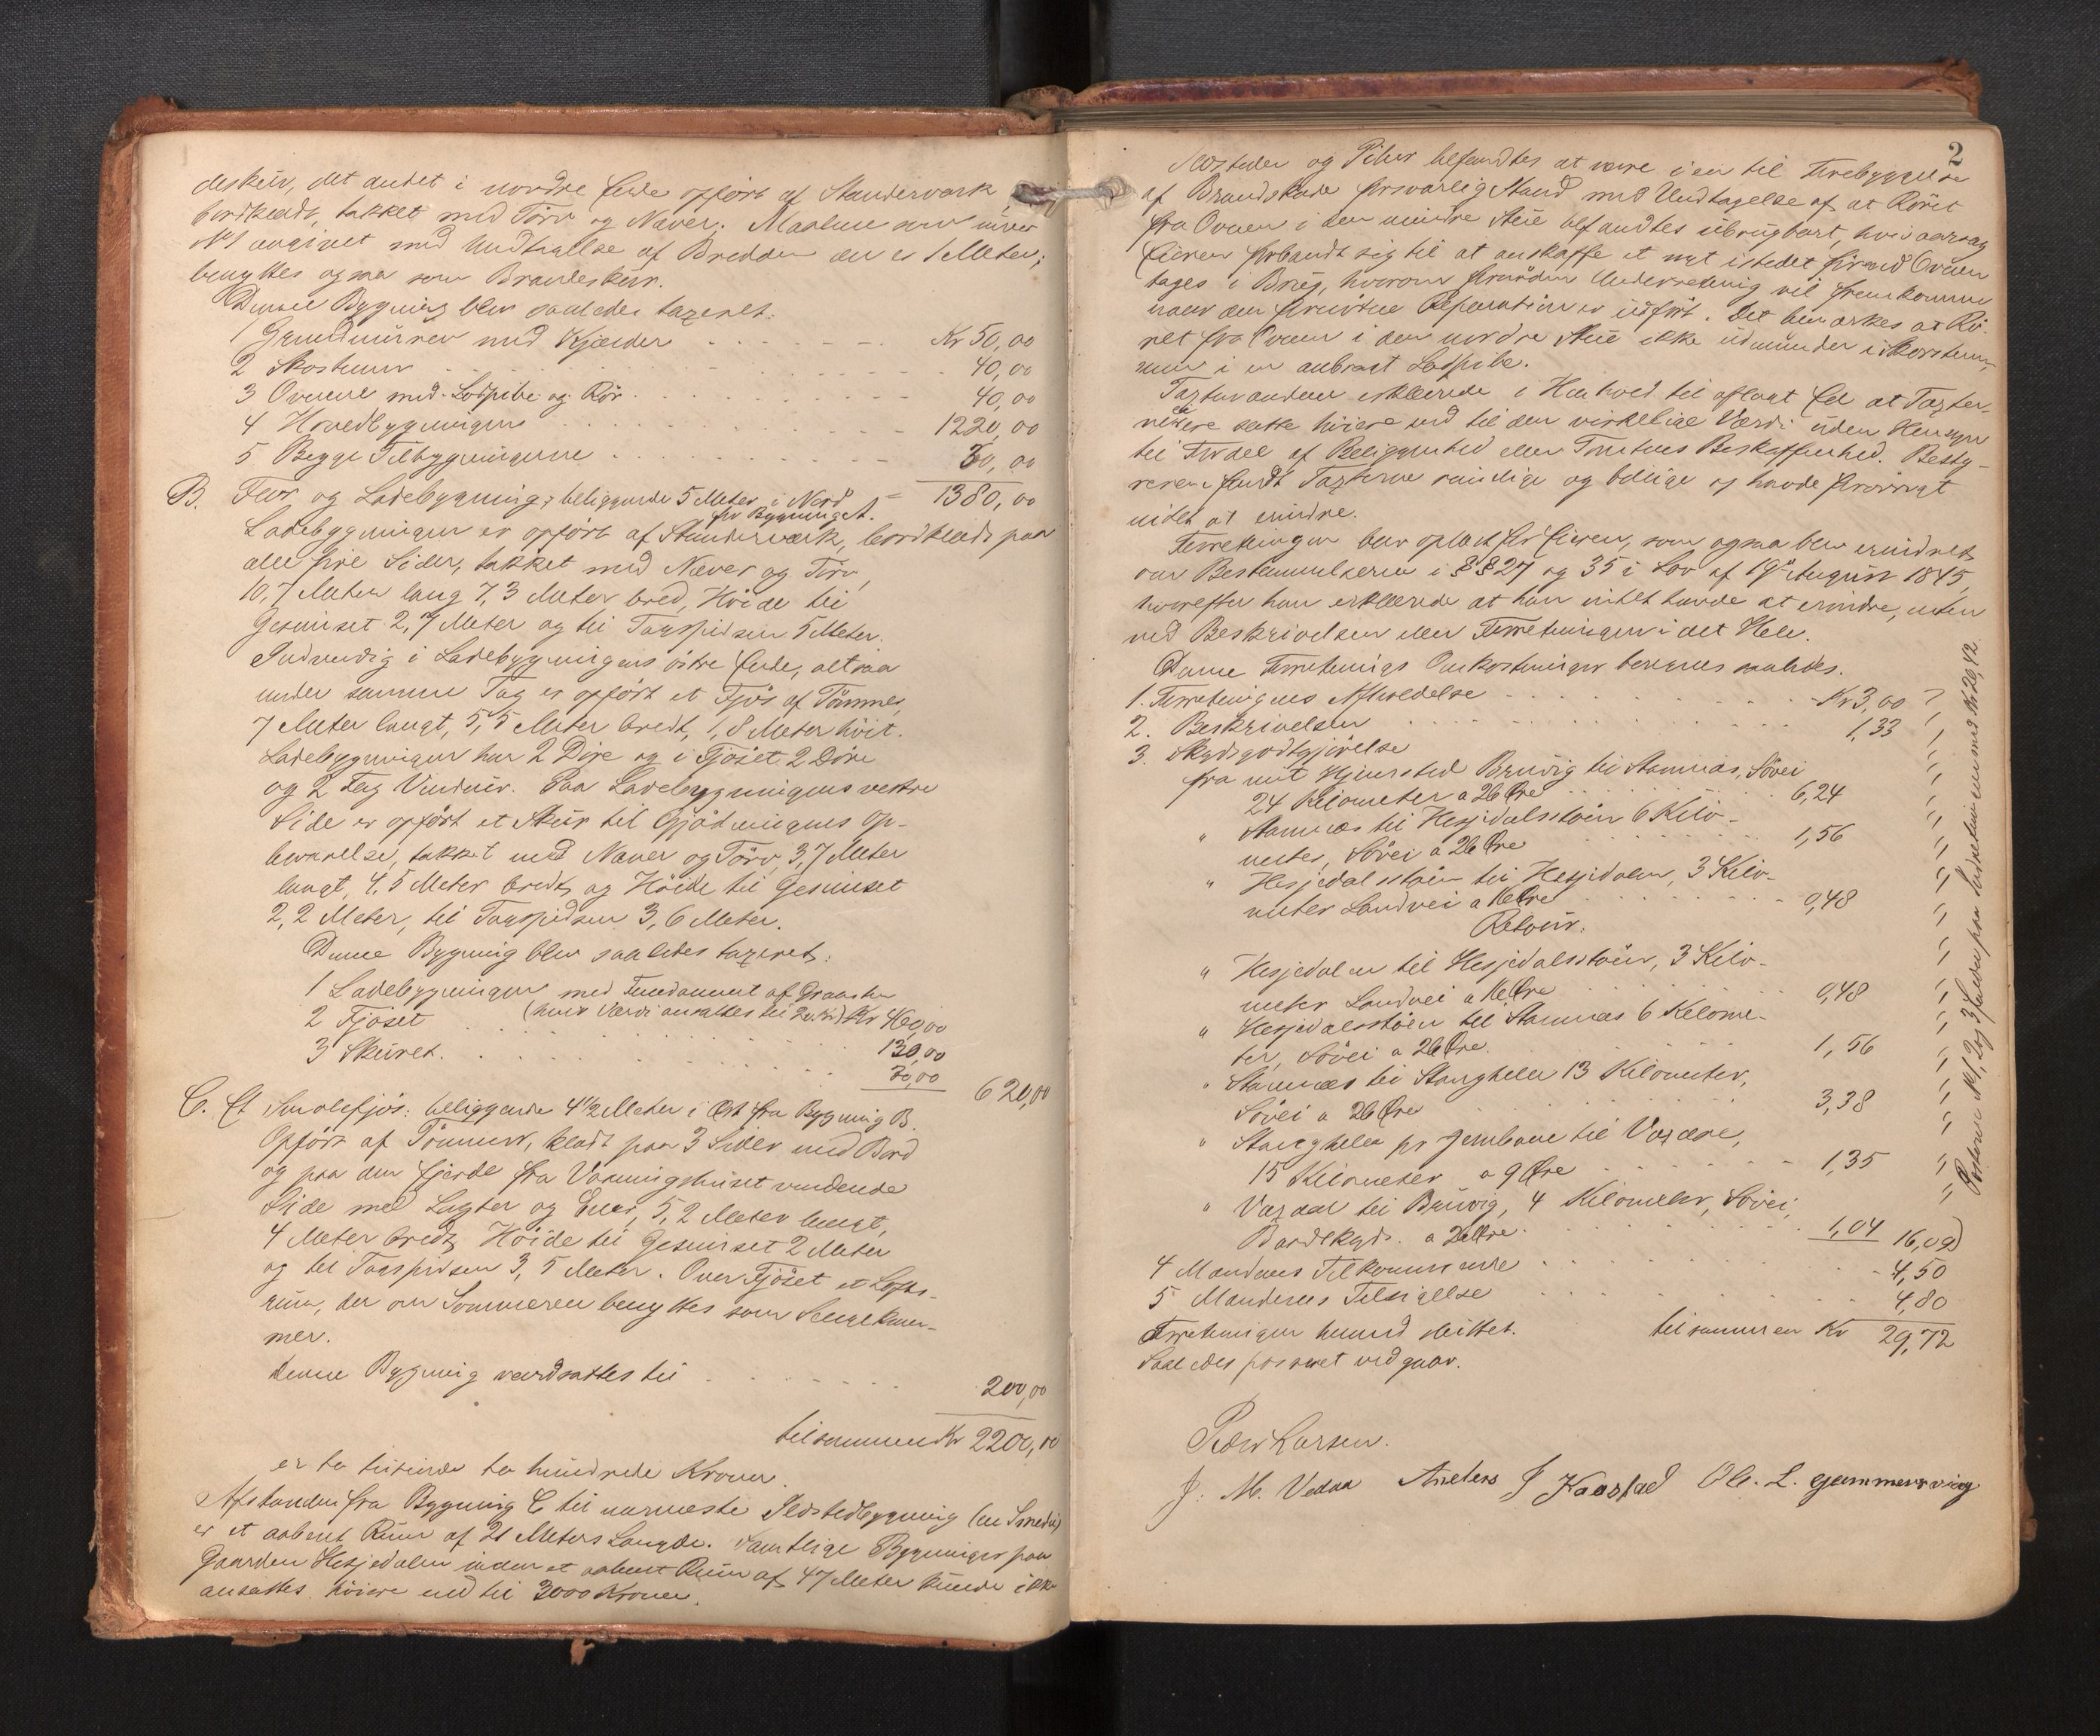 deskur, det andet i nordre Ende opført af Standerværk,
bordklædt, takket med Torv og Næver. Maalene som under
No 1 angivet med Undtagelse af Bredden der er 1 Meter;
benyttes ogsaa som Brændeskur.
Denne Bygning blev saaledes taxeret:
1 Grundmuren med Kjælder Kr 50,00
2 Skorstenen 40,00
3 Ovnene med Lodpibe og Rør 40,00
4 Hovedbygningen 1220,00
5 Begge Tilbygningerne 30,00
= 1380,00
B. Flor og Ladebygning; beliggende 5 Meter i Nord
fra Bygning A.
Ladebygningen er opført af Standerværk, bordklædt paa
alle fire Sider, takket med Næver og Torv,
10,7 Meter lang 7,3 Meter bred, Høide til
Gesimset 2,7 Meter og til Tagspidsen 5 Meter.
Indvendig i Ladebygningens østre Ende, altsaa
under samme Tag er opført et Fjøs af Tømmer,
7 Meter langt, 5,5 Meter bredt, 1,8 Meter høit.
Ladebygningen har 2 Døre og i Fjøset 2 Døre
og 2 Fag Vinduer. Paa Ladebygningens vestre
Side er opført et Skur til Gjødningens Op-
bevarelse, takket med Næver og Torv, 3,7 Meter
langt, 4,5 Meter bredt, og Høide til Gesimset
2,2 Meter, til Tagspidsen 3,6 Meter.
Denne Bygning blev saaledes taxeret:
1 Ladebygningen med Fundament af Graasten
(hvis Værdi ansættes til 20 Kr) Kr 460,00
2 Fjøset 130,00
3 Skuret 30,00
620,00
C. Et Smalefjøs: beliggende 4 1/2 Meter i Øst fra Bygning B.
Opført af Tømmer, klædt paa 3 Sider med Bord
og paa den fjerde fra Vaaningshuset vendende
Side med Lægter og Ener, 5,2 Meter langt,
4 Meter bredt, Høide til Gesimset 2 Meter
og til Tagspidsen 3,5 Meter. Over Fjøset et Lofts-
rum, der om Sommeren benyttes som Sengekam-
mer.
Denne Bygning værdsattes til 200,00
tilsammen Kr 2200,00
er to tusinde to hundrede Kroner.
Afstanden fra Bygning C til nærmeste Ildstedbygning (en Smedie)
er et aabent Rum af 21 Meters Længde. Samtlige Bygninger paa
Gaarden Hesjedalen inden et aabent Rum af 47 Meter kunde ikke
ansættes høiere end til 3000 Kroner.
2
Ildsteder og Piber befandtes at være i en til Forebyggelse
af Brandskade forsvarlig Stand med Undtagelse af at Røret
fra Ovnen i den mindre Stue befandtes ubrugbart, hvis aarsag
Eieren forbandt sig til at anskaffe et nyt istedet førend Ovnen
tages i Brug, hvorom fornøden Underretning vil fremkomme
naar den fornødne Reparation er udført. Det bemærkes at Rø-
ret fra Ovnen i den nordre Stue ikke udmunder i Skorstenen,
men i en anbragt Lodpibe.
Taxtmændene erklærede i Henhold til aflagt Ed at Taxter-
ne ei ere satte høiere end til den virkelige Værdi uden Hensyn
til Fordel af Beliggenhed eller Tomtens Beskaffenhed. Besty-
reren fandt Taxterne rimelige og billige og havde forøvrigt
intet at erindre.
Forretningen blev oplæst for Eieren, som ogsaa blev erindret
om Bestemmelserne i §§ 27 og 35 i Lov af 19de August 1845,
hvorefter han erklærede at han intet havde at erindre, enten
ved Beskrivelsen eller Forretningen i det Hele.
Denne Forretnings Omkostninger beregnes saaledes.
1. Forretningens Afholdelse Kr 3,00
2. Beskrivelsen 1,33
3. Skydsgodtgjørelse
fra mit Hjemsted Bruvig til Stamnæs, Søvei
24 Kilometer a 26 Øre 6,24
" Stamnæs til Hesjedalsstøen 6 Kilo-
meter, Søvei a 26 Øre 1,56
" Hesjedalsstøen til Hesjedalen, 3 Kilo-
meter Landvei a 16 Øre 0,48
Retour.
" Hesjedalen til Hesjedalsstøen, 3 Kilo-
meter Landvei a 16 Øre 0,48
" Hesjedalsstøen til Stamnæs 6 Kilome-
ter, Søvei a 26 Øre 1,56
" Stamnæs til Stanghelle 13 Kilometer,
Søvei a 26 Øre 3,38
" Stanghelle pr Jernbane til Vaxdal,
15 Kilometer a 9 Øre 1,35
" Vaxdal til Bruvig, 4 Kilometer, Søvei,
Baadskyds a 26 Øre 1,04 16,09
4 Mændenes Tilkommende 4,50
5 Mændenes Tilsigelse 4,80
Forretningen hermed sluttet. tilsammen Kr 29,72
Saaledes passeret vidgaar.
Peder Larsen.
J. M. Vedaa Anders J Kaarstad Ole. L. Gammersvig